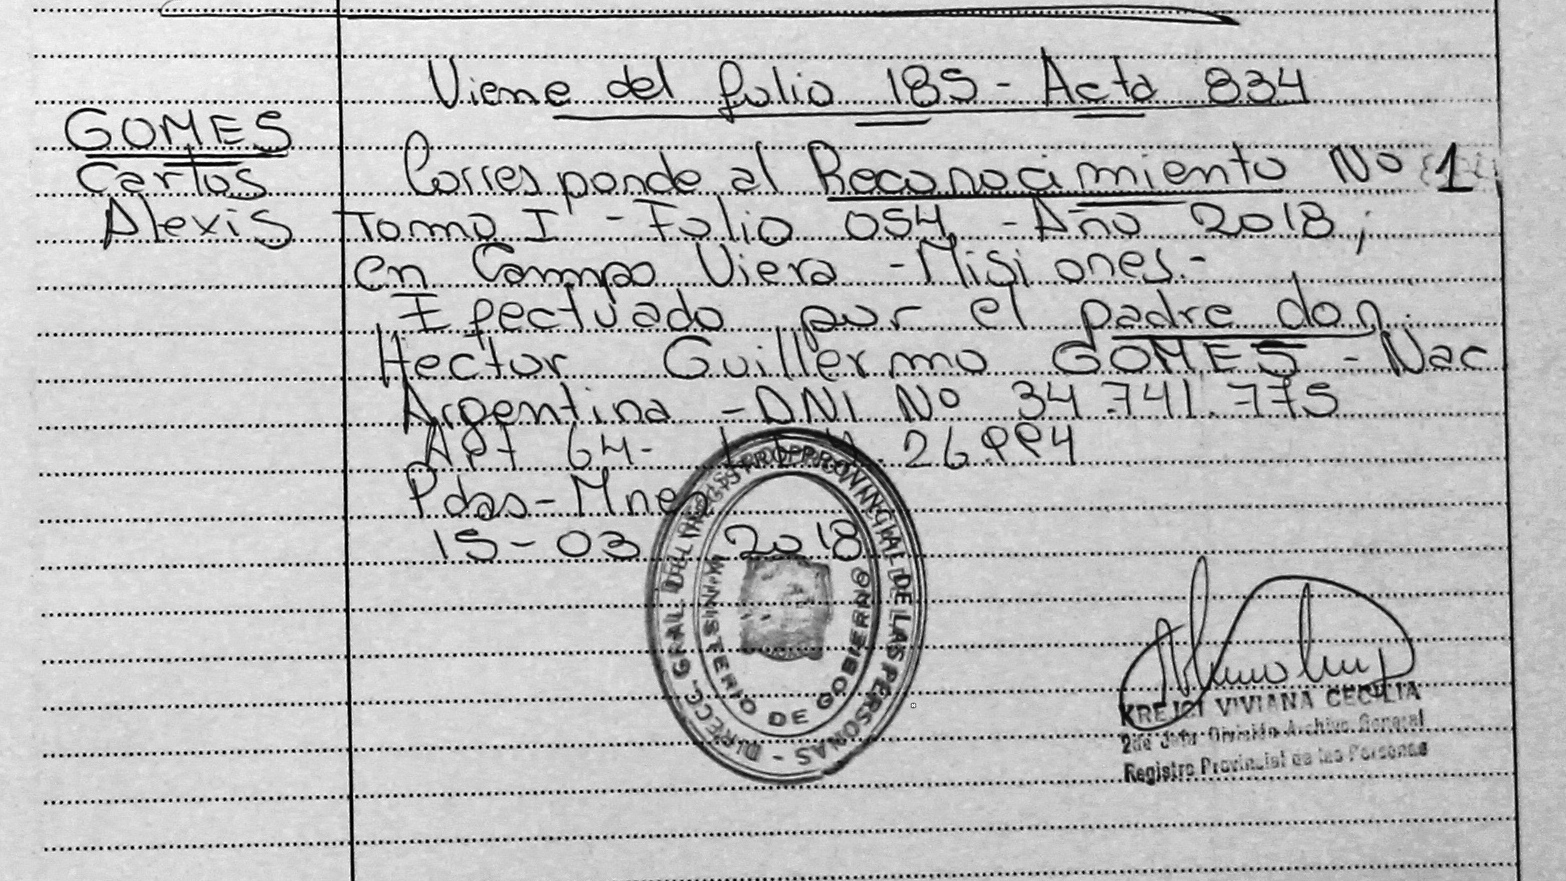 Viene del folio 185 - Acta 834
GOMES
Carlos
Alexis
Corresponde al Reconocimiento Nº 1
Tomo I - Folio 054 - Año 2018;
en Campo Viera - Misiones.-
Efectuado por el padre don
Hector Guillermo GOMES - Nac
Argentina - DNI Nº 34.741.775
64- 26994
Pdas - Mnes
15-03 2018
DIRECC. GRAL. DEL REGISTRO PROVINCIAL DE LAS PERSONAS -
MINISTERIO DE GOBIERNO
KREJCI VIVIANA CECILIA
2da Jefe División Archivo General
Registro Provincial de las Personas